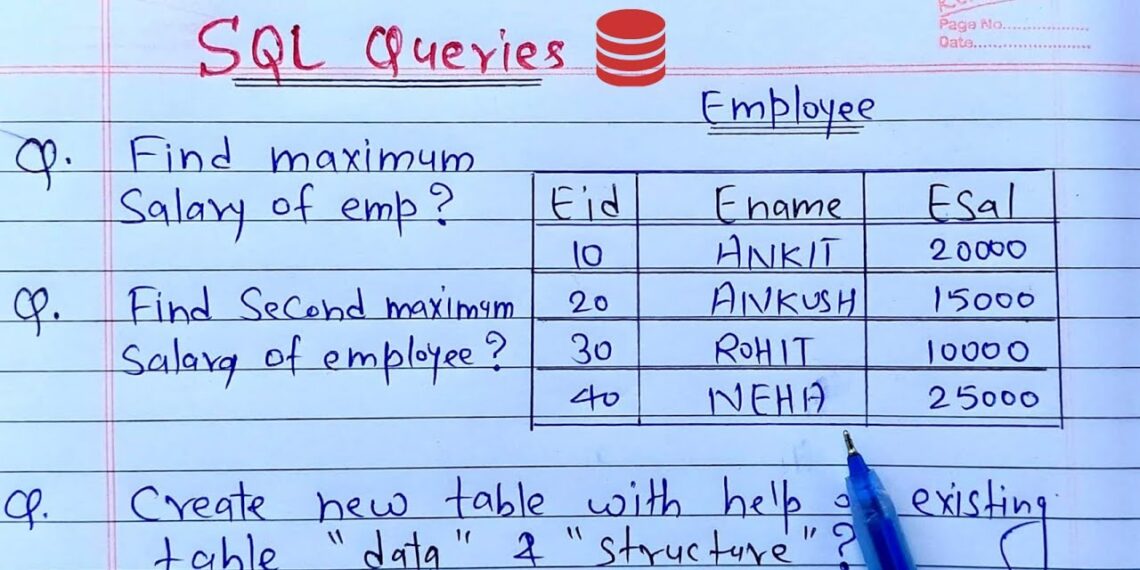 Page No.
Date
SQL Queries
Employee
Q. Find maximum
Salary of emp?
Q. Find Second maximum
Salary of employee?
Eid Ename ESal
10 ANKIT 20000
20 ANKUSH 15000
30 ROHIT 10000
40 NEHA 25000
Q. Create new table with help existing
table "data" & "structure"?